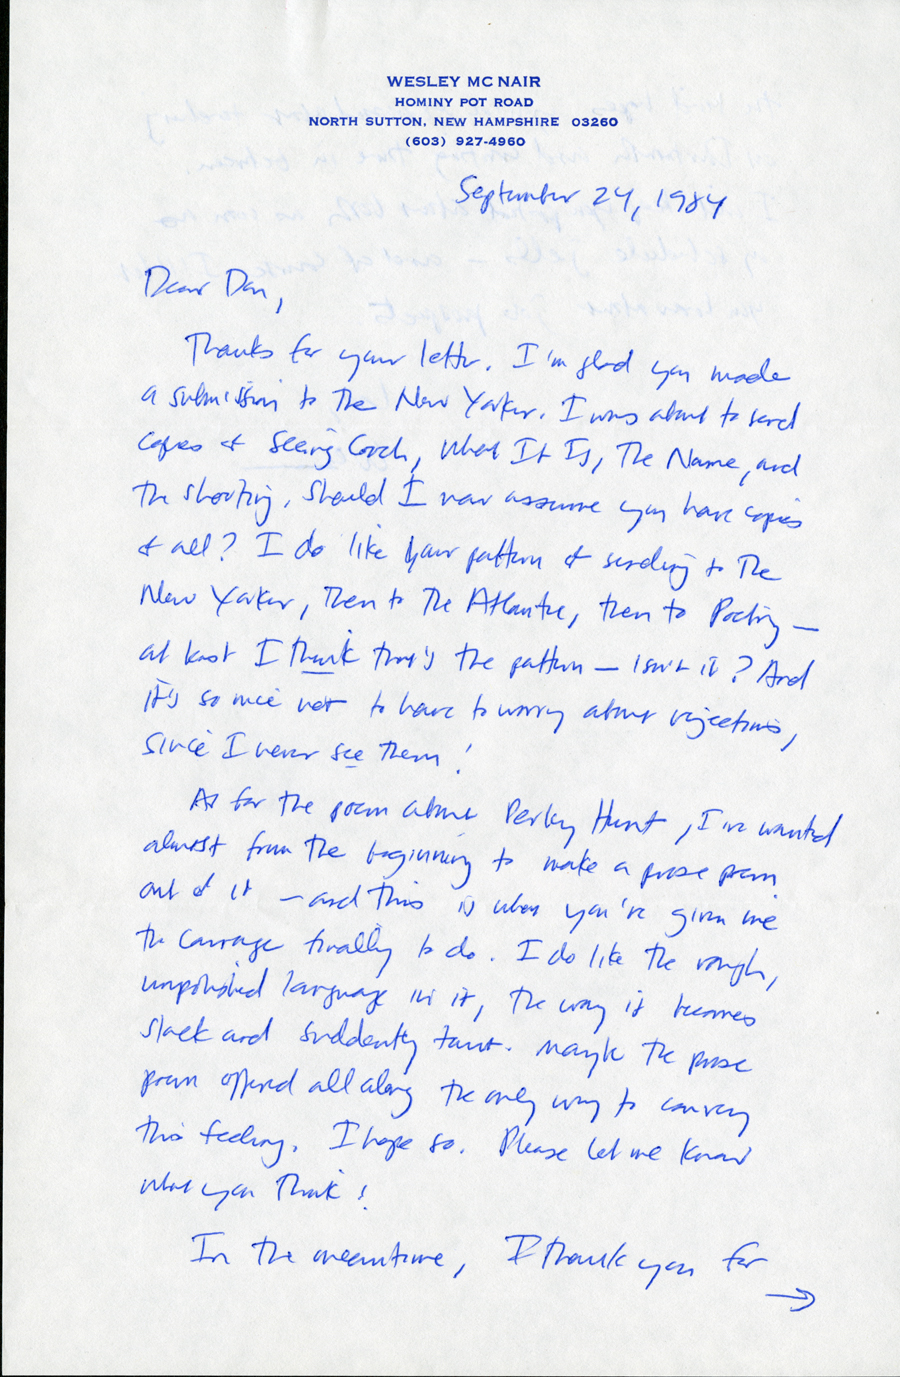 WESLEY MC NAIR
HOMINY POT ROAD
NORTH SUTTON, NEW HAMPSHIRE 03260
(603) 927-4960
September 24, 1984
Dear Don,
Thanks for your letter. I'm glad you made
a submission to The New Yorker. I was about to send
copies of Seeing Cooch, What It Is, The Name, and
the shooting. Should I now assume you have copies
of all? I do like your pattern of sending to The
New Yorker, then to The Atlantic, then to Poetry —
at least I think that's the pattern — isn't it? And
it's so nice not to have to worry about rejections,
since I never see them!
As for the poem about Perley Hunt, I've wanted
almost from the beginning to make a prose poem
out of it — and this is what you've given me
the courage finally to do. I do like the rough,
unpolished language in it, the way it becomes
slack and suddenly taut. Maybe the prose
poem offered all along the only way to convey
this feeling. I hope so. Please let me know
what you think!
In the meantime, I thank you for
→